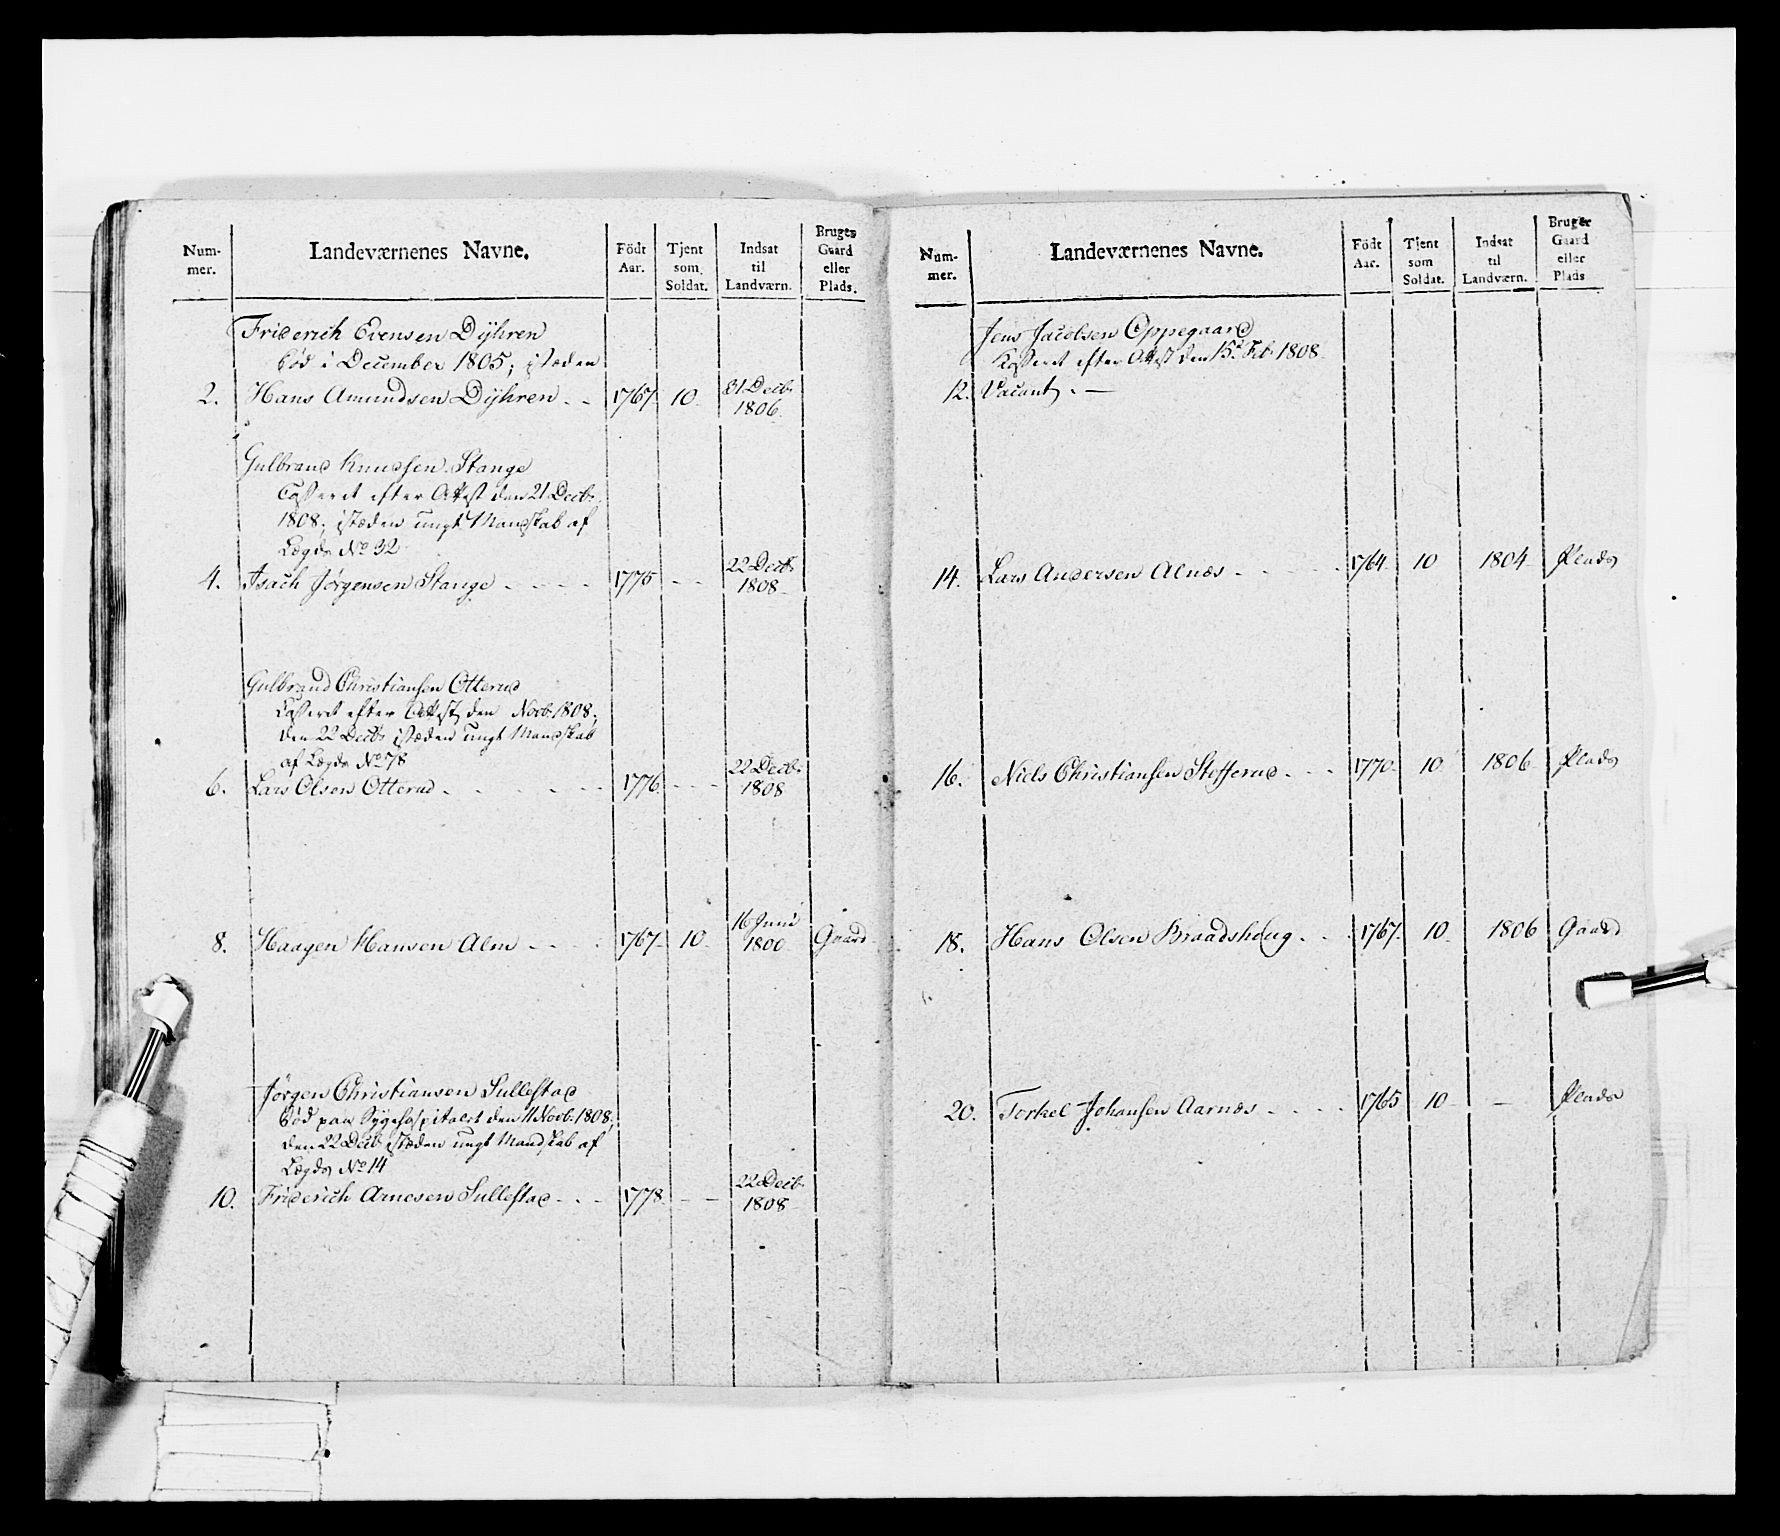 Num-
mer.
Landeværnenes Navne.
Födt
Aar.
Tjent
som
Soldat.
Indsat
til
Landværn.
Bruges
Gaard
eller
Plads.
Friderich Evensen Dÿhren
död i December 1805; isteden
2. Hans Amundsen Dÿhren . . 1767. 10. 31 Decbr
1806.
Gulbrand Knudsen Stange
Casseret efter Attest den 21 Decbr
1808; isteden ungt Mandskab af
Lægds No 32
4. Isach Jørgensen Stange - - - - 1775 - - 22 Decbr
1808.
Gulbrand Christiansen Otterud
Casseret efter Attest den Novbr 1808;
den 22 Decbr isteden ungt Mandskab
af Lægds No 78
6. Lars Olsen Otterud - - - - - 1776 - - - 22 Decbr
1808
8. Haagen Hansen Alm - - - 1767. 10. 16 Junii
1800 Gaard.
Jørgen Christiansen Sullestad
död paa Sygehospitalet den 11 Novb. 1808;
den 22 Decb isteden ungt Mandskab af
Lægds No 14
10. Friderich Arnesen Sullestad - - - 1778. - - 22 Decb.
1808
Num-
mer.
Landeværnenes Navne.
Födt
Aar.
Tjent
som
Soldat.
Indsat
til
Landværn.
Bruger
Gaard
eller
Plads
Jens Jacobsen Oppegaard
Casseret efter Attest den 15d Feb. 1808.
12. Vacant. —
14. Lars Andersen Alnæs - - - - 1764. 10 1804. Plads
16. Niels Christiansen Stefferud - - - 1770. 10. 1806. Plads
18. Hans Olsen Braadshoug. - - 1767. 10. 1806 Gaard
20. Torkel Johansen Aarnæs - - - - 1765 10 - - Plads